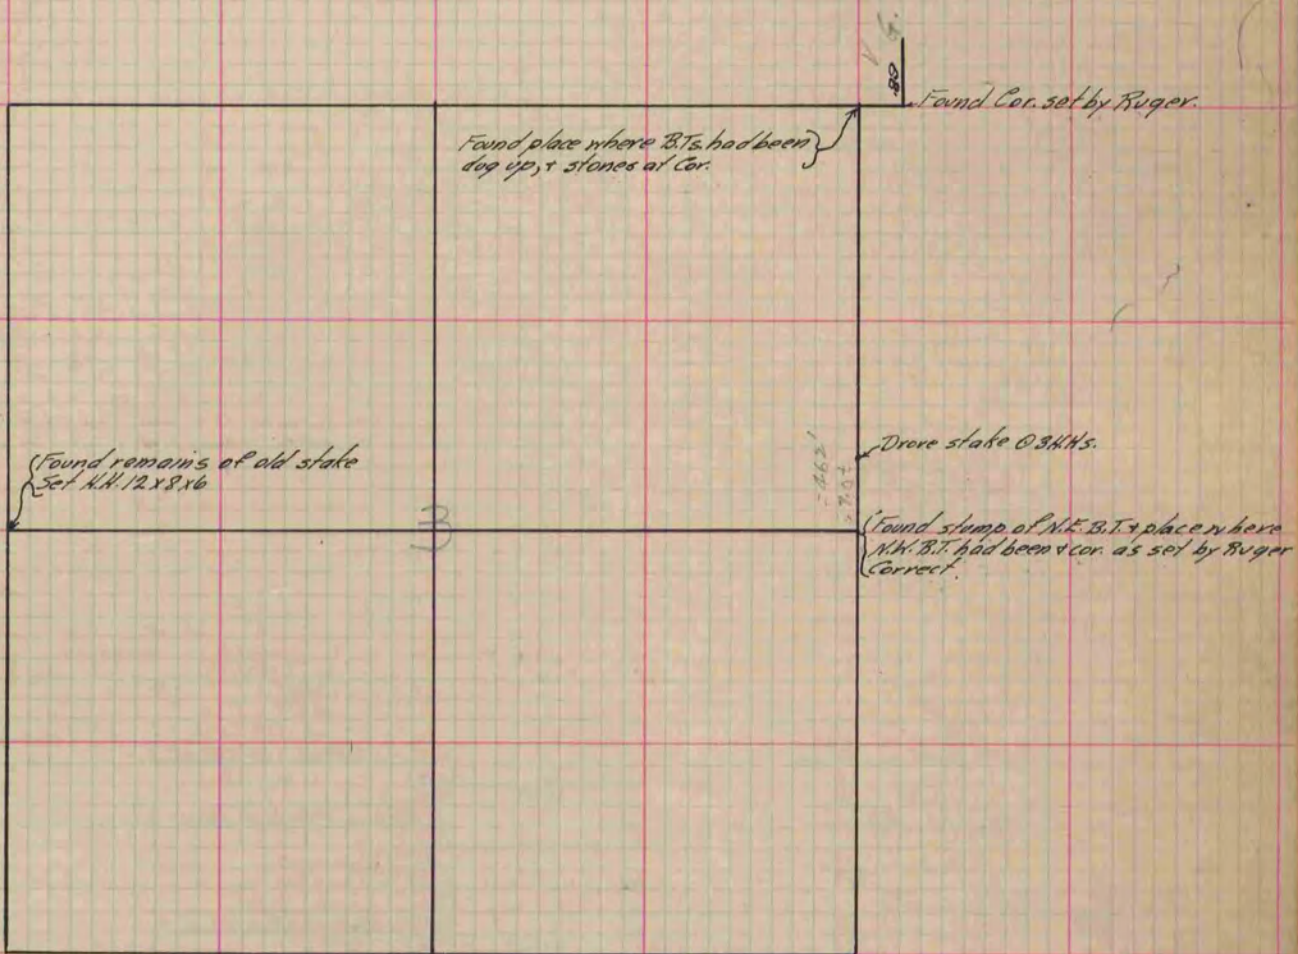 .80
Found Cor. set by Ruger.
Found place where B.Ts. had been
dug up, + stones at Cor.
Drove stake
Found remains of old stake
Set H.H. 12x8x6
3
Found stump of N.E. B.T. + place where
N.W. B.T. had been + cor. as set by Ruger
Correct.